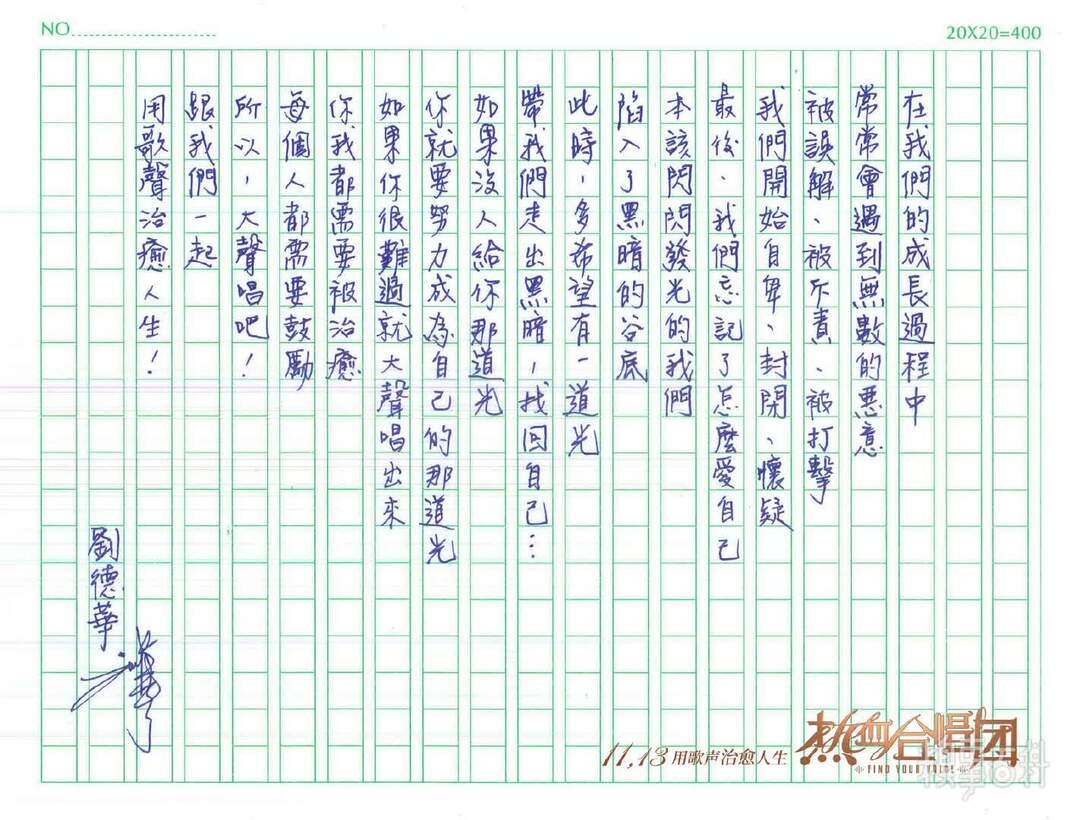 NO.
20X20=400
在我們的成長過程中
常常會遇到無數的惡意
被誤解、被斥責、被打擊
我們開始自卑、封閉、懷疑
最後、我們忘記了怎麼愛自己
本該閃閃發光的我們
陷入了黑暗的谷底
此時，多希望有一道光
帶我們走出黑暗，找回自己…
如果沒人給你那道光
你就要努力成為自己的那道光
如果你很難過就大聲唱出來
你我都需要被治癒
每個人都需要鼓勵
所以，大聲唱吧！
跟我們一起
用歌聲治癒人生！
劉德華
11.13 用歌声治愈人生
热血合唱团
FIND YOUR VOICE